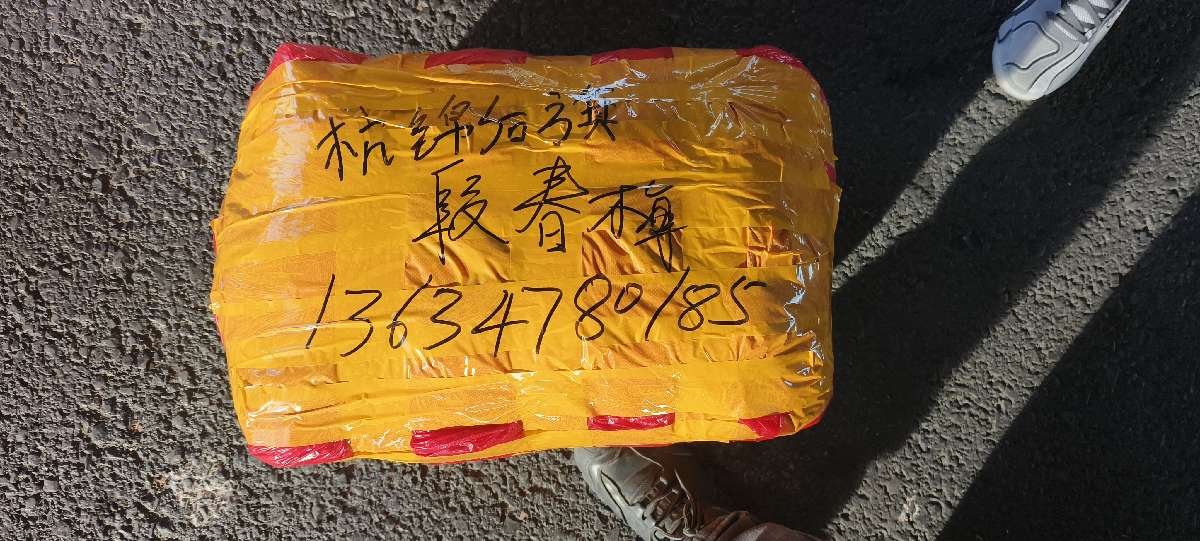 杭锦后旗
段春梅
13634780185